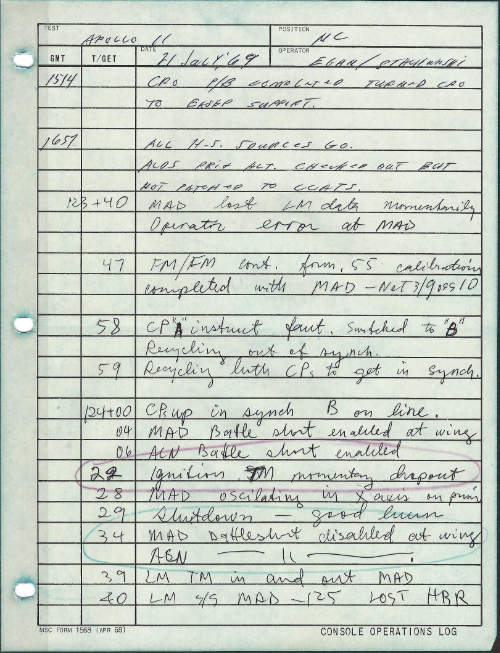 TEST
APOLLO 11
POSITION
MC
GMT T/GET
DATE
21 July '69
OPERATOR
EGAN/
1514 CRO P/B COMPLETED TURNED CRO
TO SUPPORT.
1657 ALL H.S. SOURCES GO.
ALDS PRIM ALT. CHECKED OUT BUT
NOT PATCHED TO CCATS.
123+40 MAD lost LM data momentarily
Operator error at MAD
47 FM/FM cont. form. 55 calibration
completed with MAD - Net 3/
58 CP "A" instruct fault. Switched to "B"
Recycling out of synch.
59 Recycling both CPs to get in synch.
124+00 CPs up in synch B on line.
04 MAD Battle short enabled at wing
06 ACN Battle short enabled
22 Ignition TM momentary dropout
28 MAD oscilating in X axis on prim
29 Shutdown - good burn
34 MAD Battleshort disabled at wing
ACN — 11 —
39 LM TM in and out MAD
40 LM S/S MAD -125 LOST HBR
MSC FORM 1568 (APR 68)
CONSOLE OPERATIONS LOG